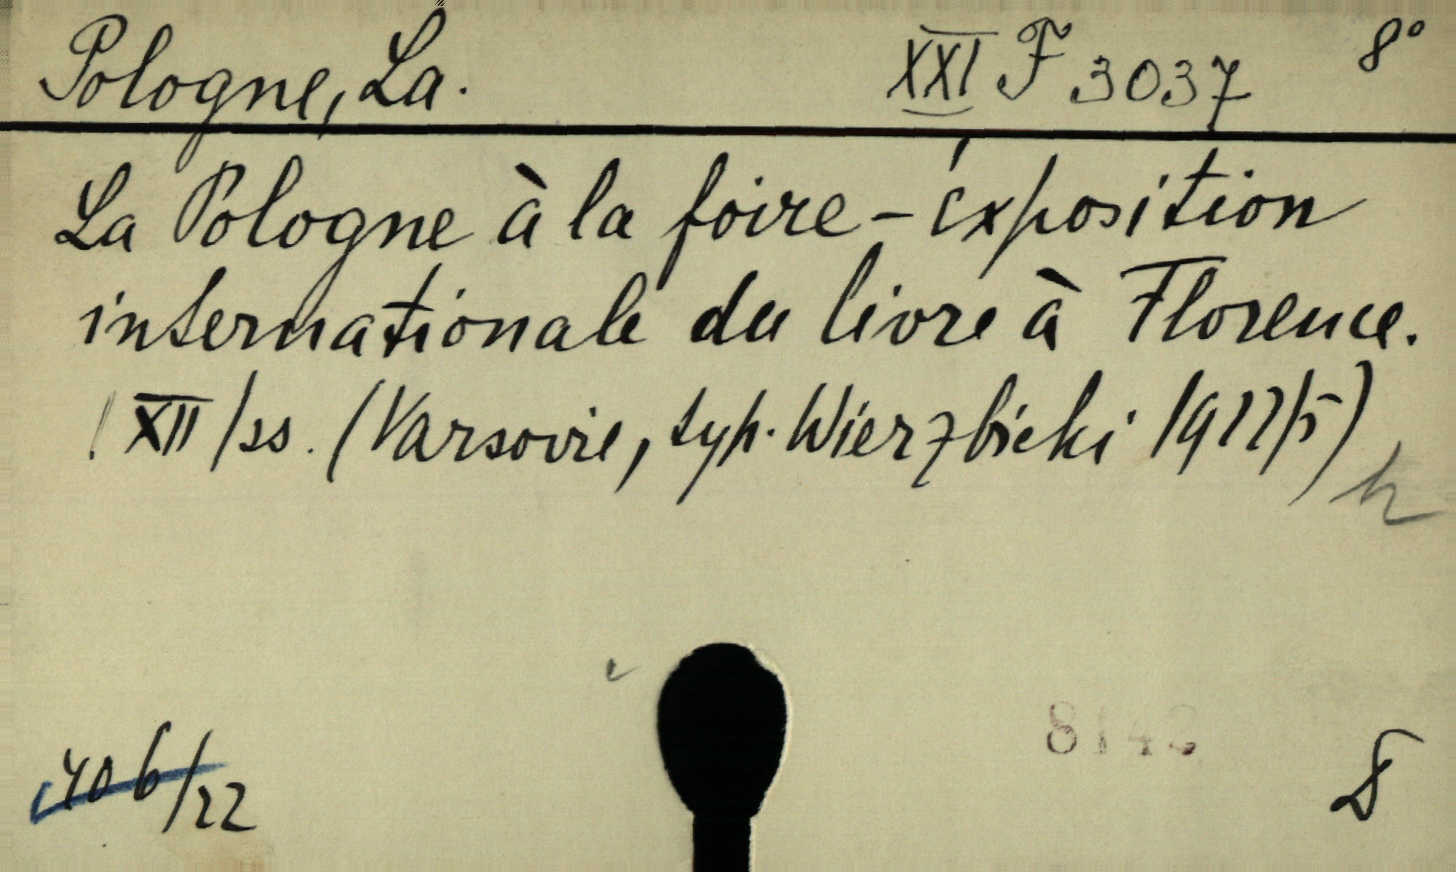 Pologne, La. XXI F 3037 8°
La Pologne à la foire-éxposition
internationale du livre à Florence.
XII/ss. (Varsovie, typ. Wierzbicki 1922/5)
406/22
8142